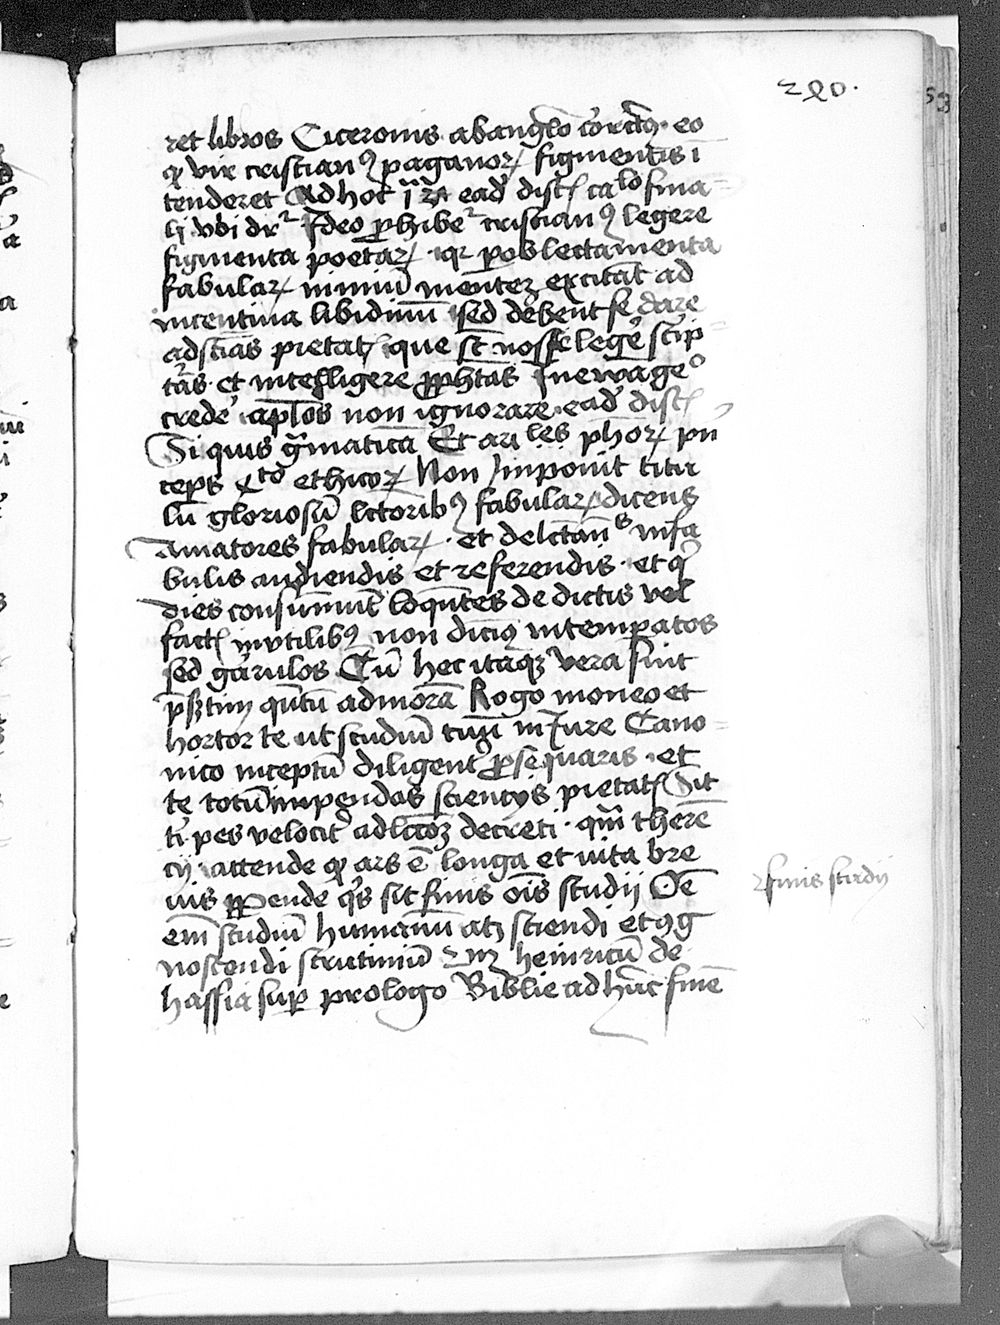 280.
53
ret libros Ciceronis ab angelo correctus. eo
ꝙ vir cristianꝰ paganoꝝ figmentis i
tenderet Ad hoc
ead dist
ca lo fina
li vbi dr̄ Ideo ꝓhibet̄ cristianꝰ legere
figmenta poetaꝝ qr̄ ꝑ oblectamenta
fabulaꝝ nimiū mentez excitāt ad
incentiua libidinū sed debent se dare
ad sciās pietatꝭ que st̄ nosse legē scrip
tas et intelligere ꝓphtas In ewāgeo
crede aplōs non ignorare ead dist
Si quis grāmaticā Et ari les phoꝝ pn̄
ceps 4to ethicoꝝ Non imponit titu
lū gloriosū lectoribꝰ fabulaꝝ dicens
Amatores fabulaꝝ et delectān in fa
bulis audiendis et referendis et qi
dies consumūt loquētes de dictis vel
factꝭ inutilibꝰ non dicimꝰ intemperatos
sed garrulos Cū hec itaqꝫ vera sint
quātū ad morā Rogo moneo et
hortor te ut studiū tuū in Jure Cano
nico inceptū diligent̄ ꝓsequaris et
te totū impendas scientijs pietatꝭ Sit
ti pes velocit̄ ad lcōꝫ decreti
attende ꝙ ars ē longa et uita bre
uis ꝑpende qs sit finis oīs studij Oē
em̄ studiū humanū atqꝫ sciendi et ꝯg
noscendi scrutiniū
heinricū de
hassia sup prologo Biblie ad hūc finē
finis studij